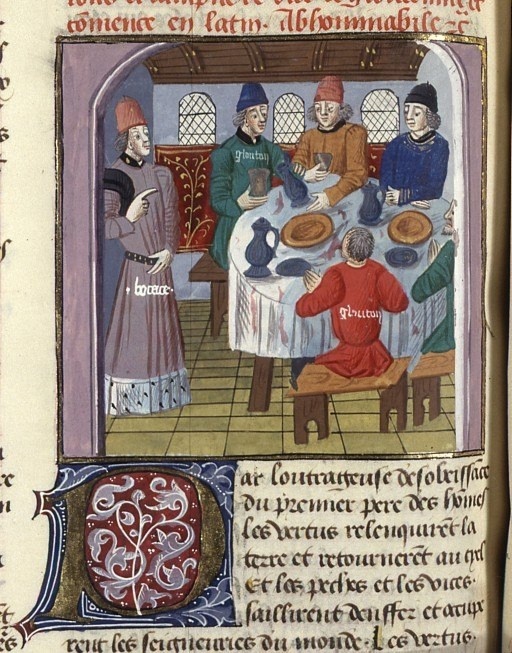 comence en latin. Abhominabile &c
glouton
bocace
glouton
Par loutrageuse desobeissãce
du premier pere des homẽs
les vertus relenquirẽt la
terre et retournerẽt au ciel
Et les pechez et les vices
saillirent denffer et occupe
rent les seigneuries du monde. Les vertus